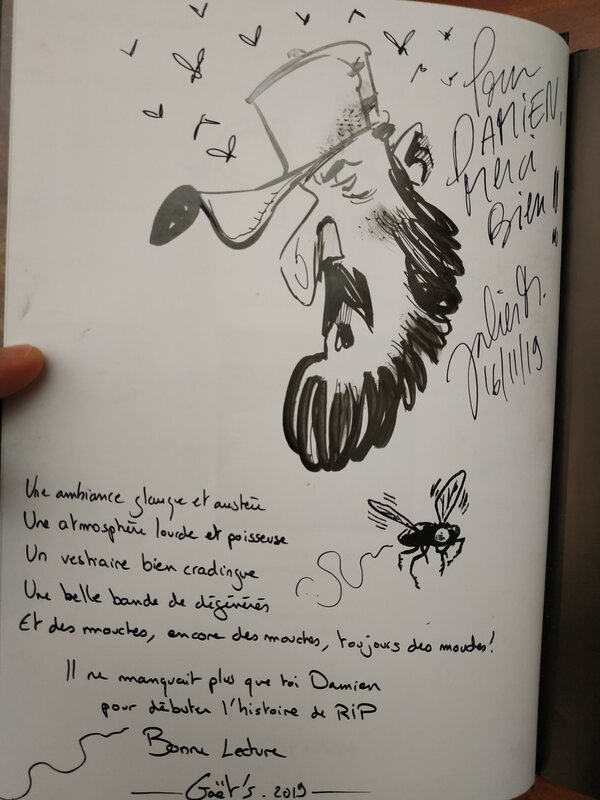 Pour
DAMIEN,
Merci
Bien !!
Julien M.
16/11/19
Une ambiance glauque et austère
Une atmosphère lourde et poisseuse
Un vestiaire bien cradingue
Une belle bande de dégénérés
Et des mouches, encore des mouches, toujours des mouches!
Il ne manquait plus que toi Damien
pour débuter l'histoire de RIP
Bonne Lecture
Gaët's. 2019